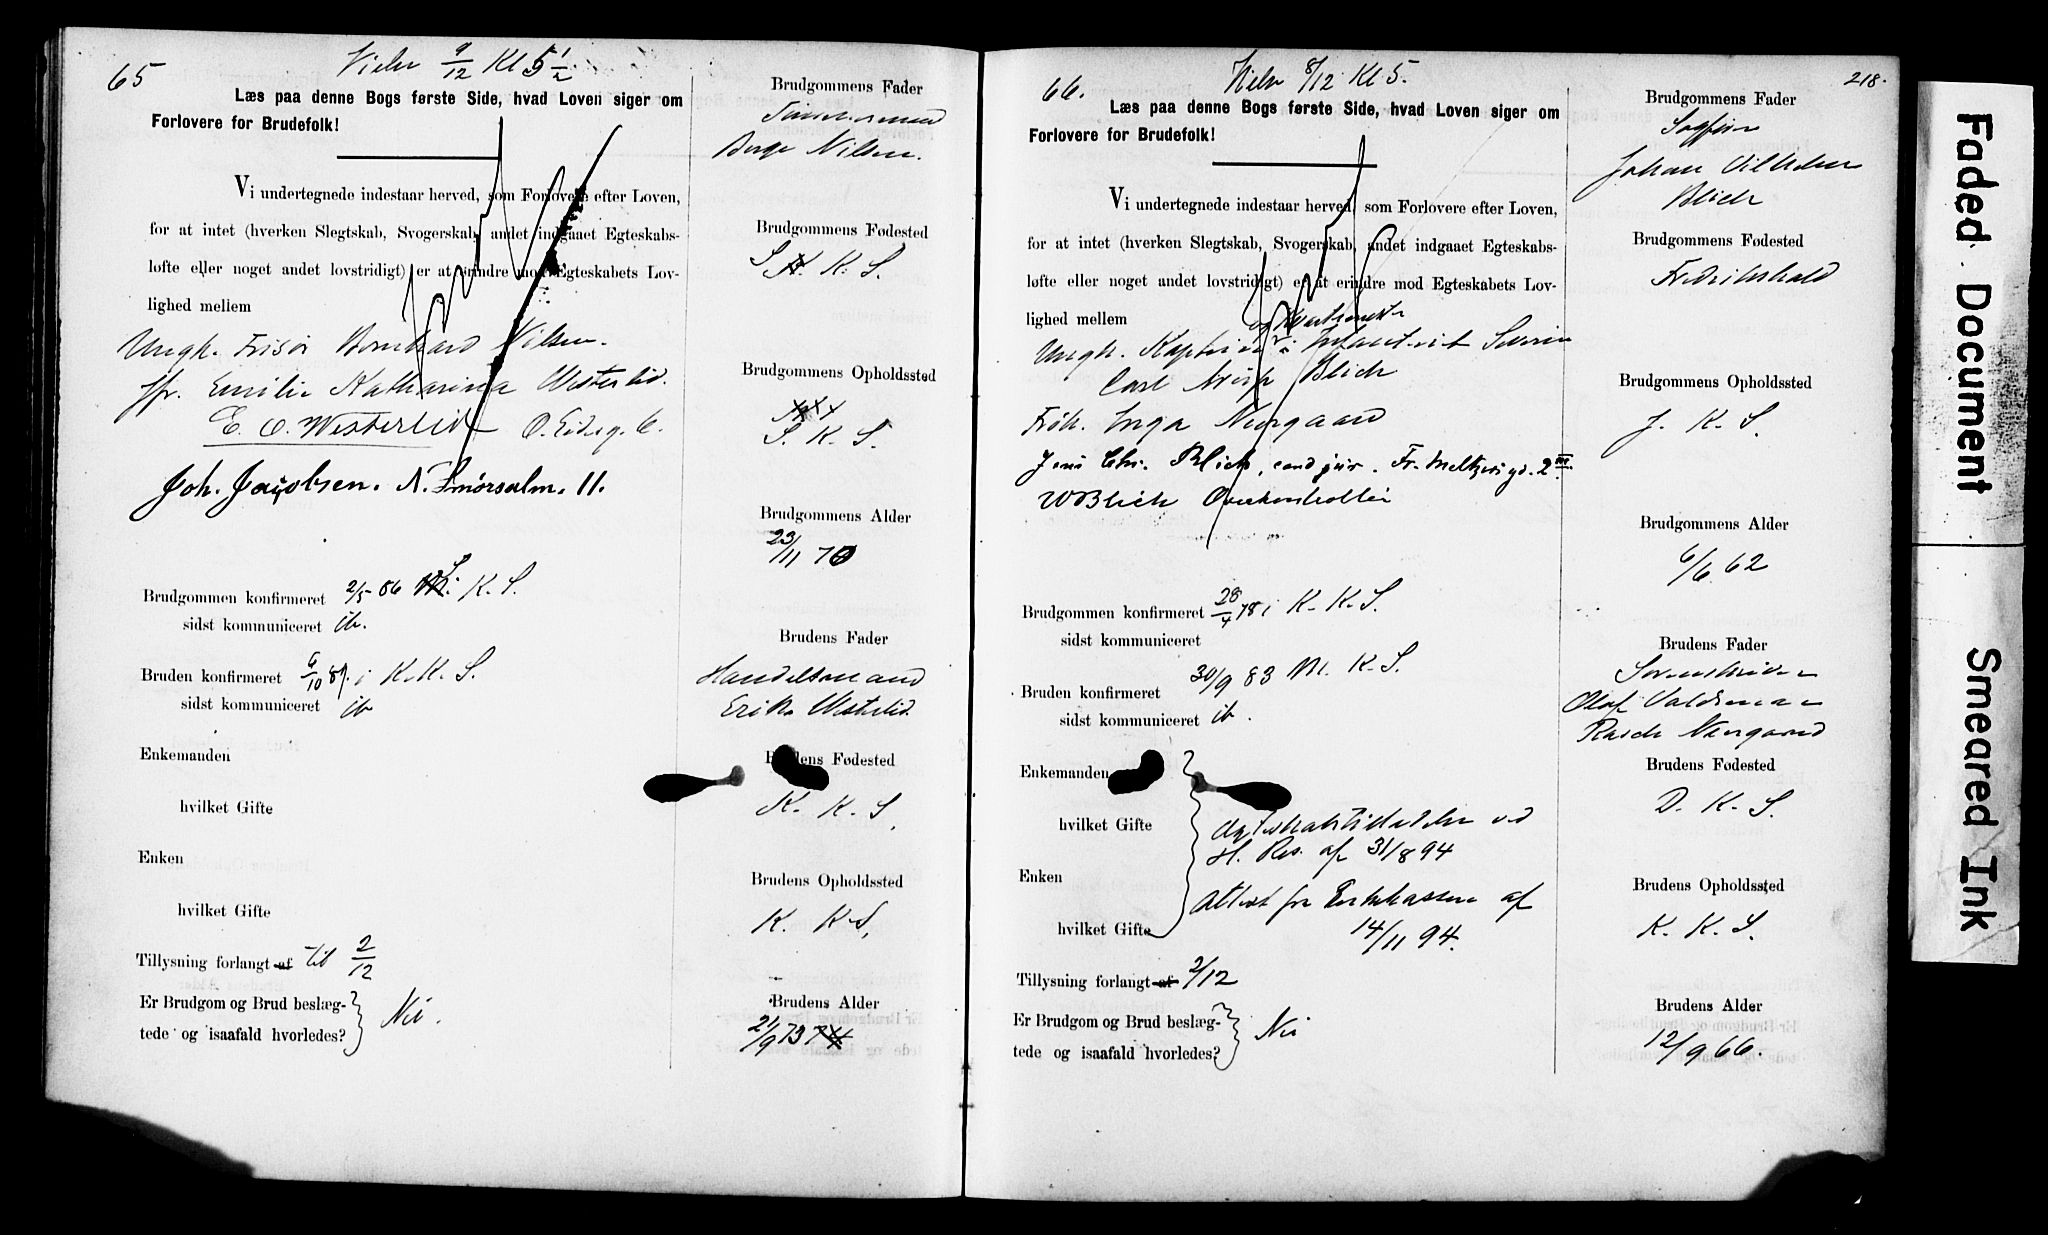 65
Vielse 9/12 Kl 5 1/2
Læs paa denne Bogs første Side, hvad Loven siger om
Forlovere for Brudefolk!
Vi undertegnede indestaar herved, som Forlovere efter Loven,
for at intet (hverken Slegtskab, Svogerskab, andet indgaaet Egteskabs-
løfte eller noget andet lovstridigt) er at erindre mod Egteskabets Lov-
lighed mellem
Ungk. Frisør Nilsen.
Jfr. Emilie Katharina Westerlid.
E. O. Westerlid
Joh. Jacobsen. N. Smörsalm. 11.
Brudgommen konfirmeret 2/5 86 K. S.
sidst kommuniceret ib.
Bruden konfirmeret 6/10 87. i K. K. S.
sidst kommuniceret ib
Enkemanden
hvilket Gifte
Enken
hvilket Gifte
Tillysning forlangt af til 2/12
Er Brudgom og Brud beslæg-
tede og isaafald hvorledes? Nei.
Brudgommens Fader
Tømmermand
Nilsen.
Brudgommens Fødested
K. S.
Brudgommens Opholdssted
S. K. S.
Brudgommens Alder
23/11 70
Brudens Fader
Handelsmand
Erik Westerlid
Brudens Fødested
K. K. S.
Brudens Opholdssted
K. K. S.
Brudens Alder
21/9 73
66.
Vielse 8/12 Kl 5.
218.
Læs paa denne Bogs første Side, hvad Loven siger om
Forlovere for Brudefolk!
Vi undertegnede indestaar herved, som Forlovere efter Loven,
for at intet (hverken Slegtskab, Svogerskab, andet indgaaet Egteskabs-
løfte eller noget andet lovstridigt) er at erindre mod Egteskabets Lov-
lighed mellem
Ungk. Kaptein i Infanteriet Severin
Carl Blich
Frøk. Inga Neergaard
Jens Chr. Blich, cand jur. Fr. Meltzersgd. 2
W Blich Overkontrollør
Brudgommen konfirmeret 28/4 78 i K. K. S.
sidst kommuniceret
Bruden konfirmeret 30/9 83 M. K. S.
sidst kommuniceret ib.
Enkemanden
hvilket Gifte
Egteskabstilladelse ved
H. Res. af 31/8 94
Enken
Attest fra Enkekassen af
hvilket Gifte
14/11 94.
Tillysning forlangt af 2/12
Er Brudgom og Brud beslæg-
tede og isaafald hvorledes? Nei
Brudgommens Fader
Sagfører
Johan Vilhelm
Blich
Brudgommens Fødested
Fredrikshald
Brudgommens Opholdssted
J. K. S.
Brudgommens Alder
6/6 62
Brudens Fader
Sorenskriver
Olaf Valdemar
Rasch Neergaard
Brudens Fødested
D. K. S.
Brudens Opholdssted
K. K. S.
Brudens Alder
12/9 66.
Faded Document
Smeared Ink